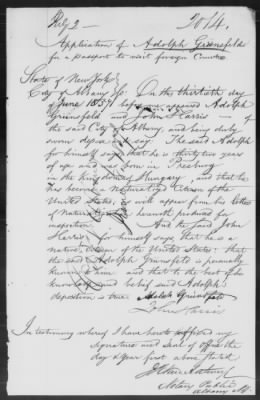 July 2 — No 14.
Application of Adolph Grünsfeld
for a passport to visit foreign
State of New York
City of Albany On the thirtieth day
of June 1859 before me appeared Adolph
Grünsfeld and John Harris — of
the said City of Albany, and being duly
sworn depose say. The said Adolph
for himself says that he is thirty two years
of age and was born in
in the Kingdom of Hungary, and that he
has become a Naturalized Citizen of the
United States, as will appear from his letters
of Natural herewith produced for
inspection And the said John
Harris for himself says that he is a
native Citizen of the United States & that
the said Adolph Grünsfeld is personally
known to him and that to the best of his
knowledge and belief said Adolph's
deposition is true Grünsfeld
John Harris
In testimony whereof I have hereto affixed my
signature and seal of office the
day & year first above stated
Notary Public
Albany N.Y.